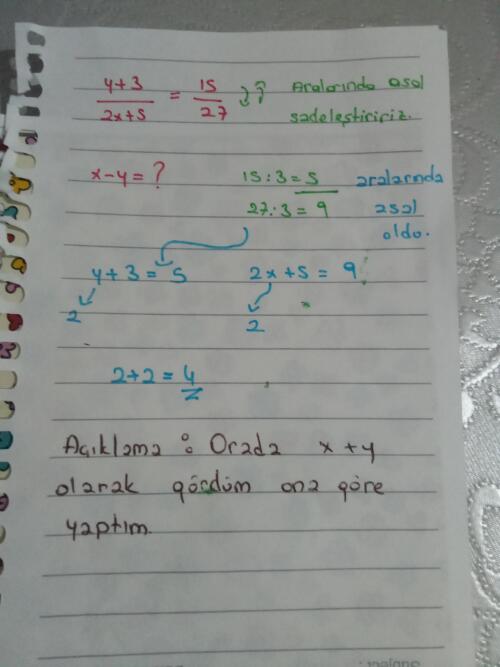 y+3 / 2x+5 = 15 / 27 Aralarında asal
sadeleştiririz.
x-y=? 15:3=5 aralarında
27:3=9 asal
oldu.
y+3=5 2x+5=9
2 2
2+2=4
Açıklama: Orada x+y
olarak gördüm ona göre
yaptım.